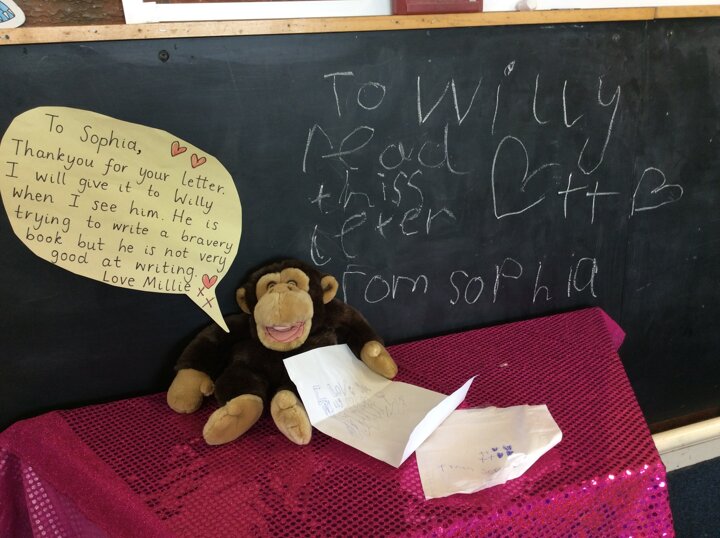 To Sophia,
Thankyou for your letter.
I will give it to Willy
when I see him. He is
trying to write a bravery
book but he is not very
good at writing.
Love Millie xx
To Willy
read
thiss
leter
from sophia